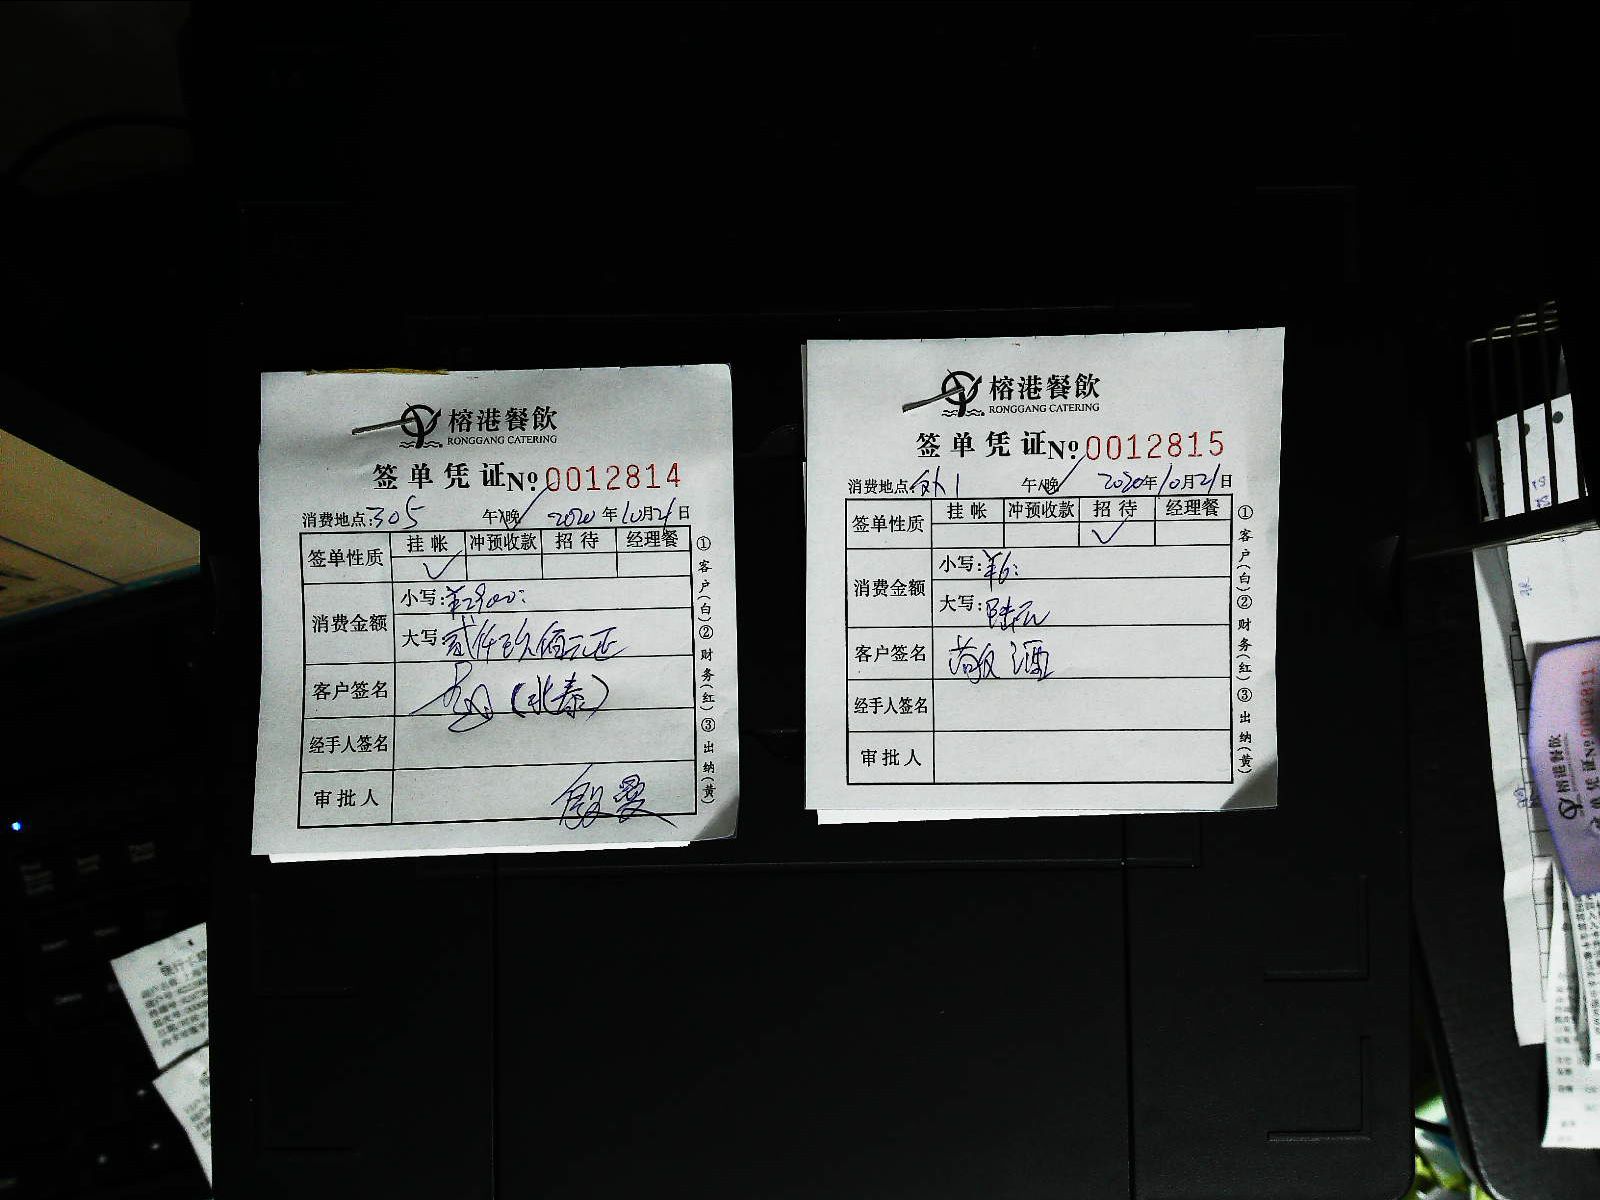 榕港餐飲
RONGGANG CATERING
签单凭证№0012814
消费地点:305 午\晚 2020年10月21日
签单性质 挂帐 冲预收款 招待 经理餐
消费金额
小写:¥2900:
大写 贰仟玖佰元正
客户签名 (永泰)
经手人签名
审批人 殷曼
①客户(白)②财务(红)③出纳(黄)
榕港餐飲
RONGGANG CATERING
签单凭证№0012815
消费地点:外1 午\晚 2020年10月21日
签单性质 挂帐 冲预收款 招待 经理餐
消费金额
小写:¥6:
大写:陆元
客户签名
经手人签名
审批人
①客户(白)②财务(红)③出纳(黄)
榕港餐飲
№0012811